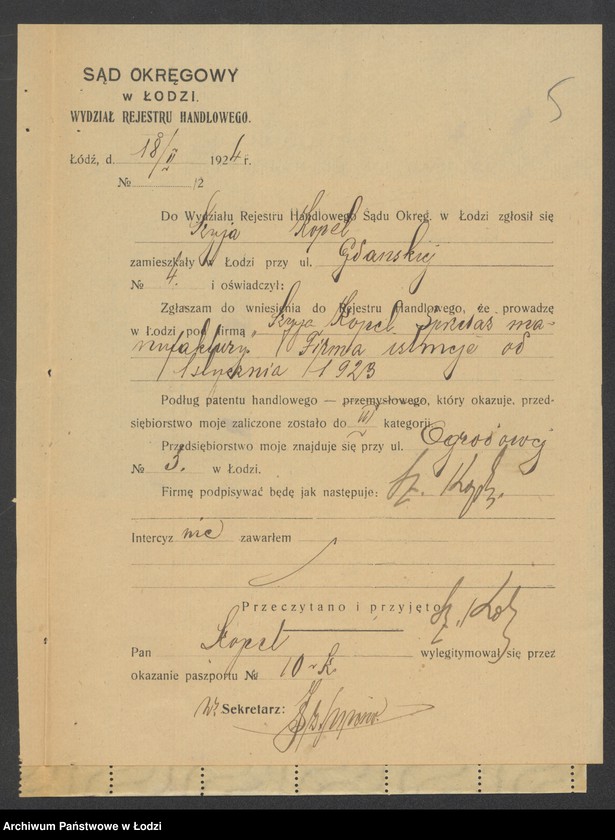 SĄD OKRĘGOWY
W ŁODZI.
WYDZIAŁ REJESTRU HANDLOWEGO.
5
Łódź, d. 18/II 1924 r.
№ /2
Do Wydziału Rejestru Handlowego Sądu Okręg. w Łodzi zgłosił się
Szyja Kopel
zamieszkały w Łodzi przy ul. Gdańskiej
№ 4. i oświadczył:
Zgłaszam do wniesienia do Rejestru Handlowego, że prowadzę
w Łodzi pod firmą „Szyja Kopel sprzedaż ma-
nufaktury." Firma istnieje od
1 stycznia 1923
Podług patentu handlowego — przemysłowego, który okazuje, przed-
siębiorstwo moje zaliczone zostało do III kategorji.
Przedsiębiorstwo moje znajduje się przy ul. Ogrodowej
№ 3. w Łodzi.
Firmę podpisywać będę jak następuje: Sz. Kopel
Intercyz nie zawarłem
Przeczytano i przyjęto Sz. Kopel
Pan Kopel wylegitymował się przez
okazanie paszportu №
Sekretarz:
Archiwum Państwowe w Łodzi